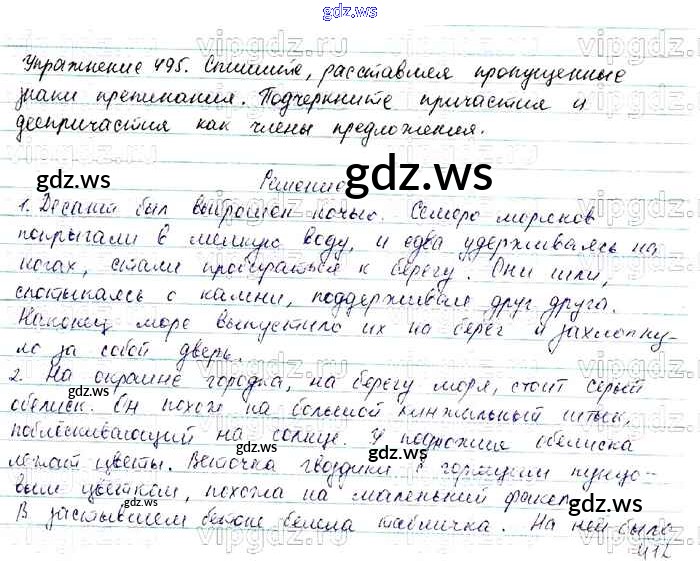 gdz.ws
Упражнение 495. Спишите, расставляя пропущенные
знаки препинания. Подчеркните причастия и
деепричастия как члены предложения.
gdz.ws
gdz.ws
Решение
1. Десант был выброшен ночью. Семеро моряков
попрыгали в мелкую воду, и едва удерживаясь на
ногах, стали пробираться к берегу. Они шли,
спотыкаясь о камни, поддерживая друг друга.
Наконец море выпустило их на берег и захлопну-
ло за собой дверь.
gdz.ws
gdz.ws
2. На окраине городка, на берегу моря, стоит серый
обелиск. Он похож на большой кинжальный штык,
поблёскивающий на солнце. У подножия обелиска
лежат цветы. Веточка гвоздики с горящим пунцо-
вым цветком, похожа на маленький факел.
gdz.ws
gdz.ws
В застывшем бетоне белела табличка. На ней было
412
gdz.ws